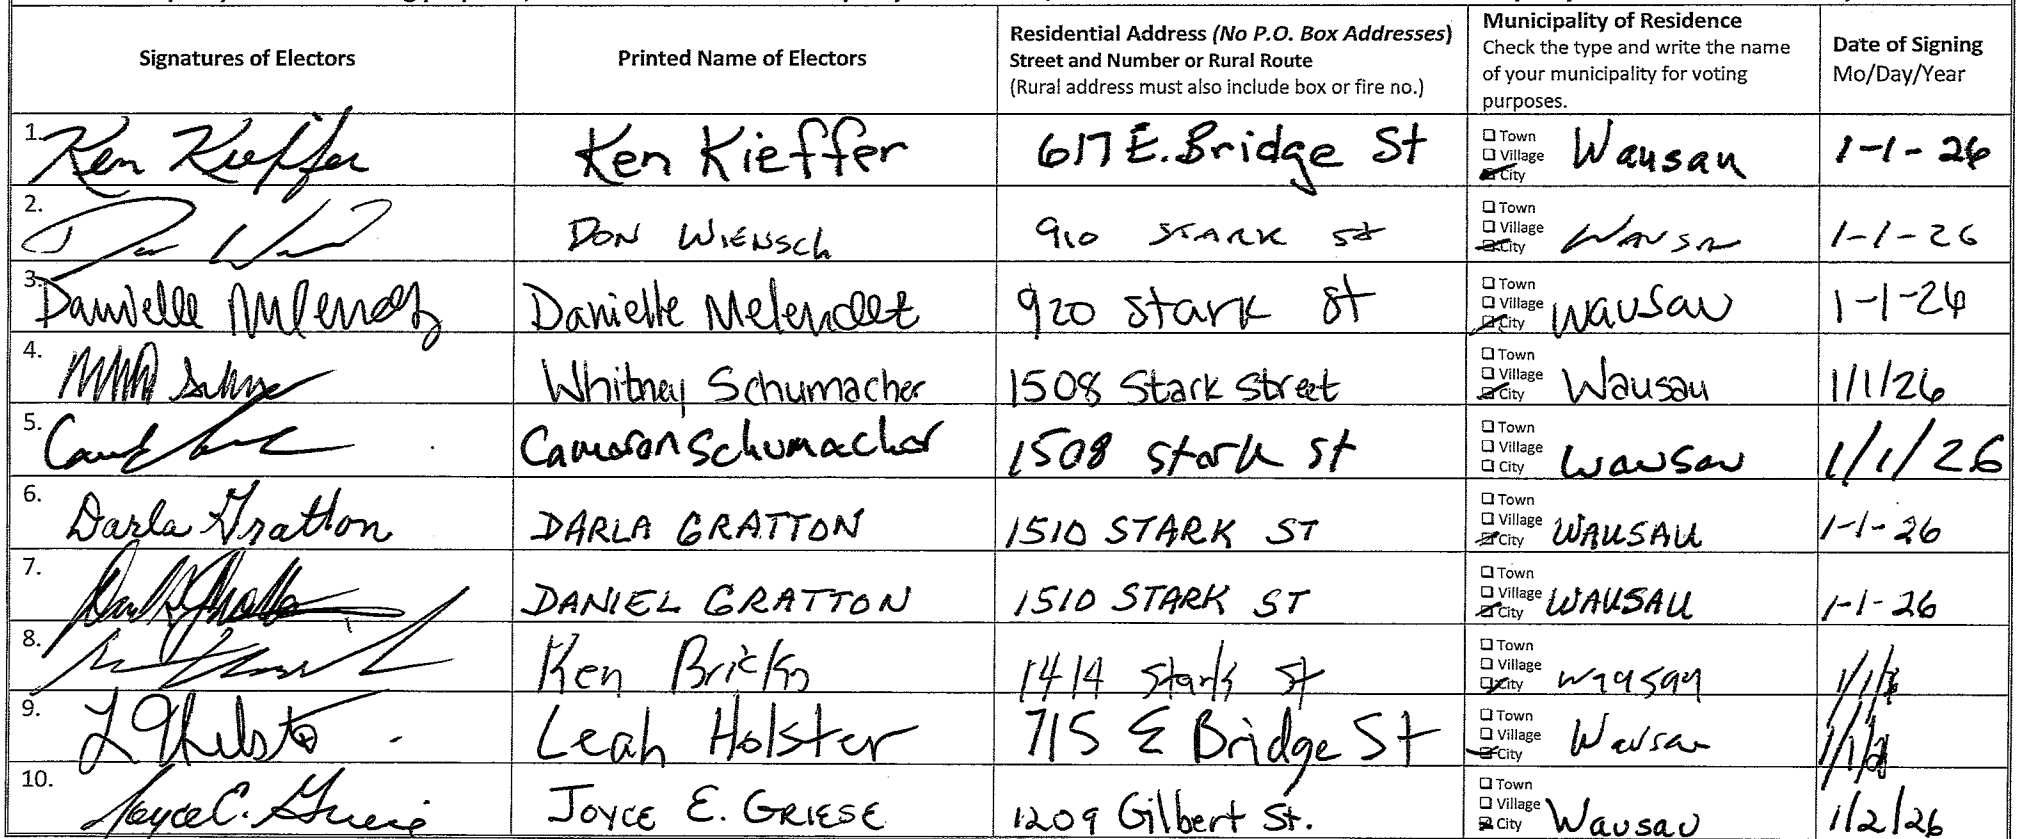 Signatures of Electors
Printed Name of Electors
Residential Address (No P.O. Box Addresses)
Street and Number or Rural Route
(Rural address must also include box or fire no.)
Municipality of Residence
Check the type and write the name
of your municipality for voting
purposes.
Date of Signing
Mo/Day/Year
1. Ken Kieffer Ken Kieffer 617 E. Bridge St Town Village City Wausau 1-1-26
2. DON WIENSCH 910 STARK St Town Village City 1-1-26
3. Danielle Melendez Danielle Melendez 920 Stark St Town Village City Wausau 1-1-26
4. Whitney Schumacher 1508 Stark Street Town Village City Wausau 1/1/26
5. Cameron Schumacher 1508 Stark St Town Village City Wausau 1/1/26
6. Darla Gratton DARLA GRATTON 1510 STARK ST Town Village City WAUSAU 1-1-26
7. DANIEL GRATTON 1510 STARK ST Town Village City WAUSAU 1-1-26
8. Ken 1414 Stark St Town Village City Wausau
9. Leah Holster 715 E Bridge St Town Village City Wausau
10. Joyce E. Griese JOYCE E. GRIESE 1209 Gilbert St. Town Village City Wausau 1/2/26